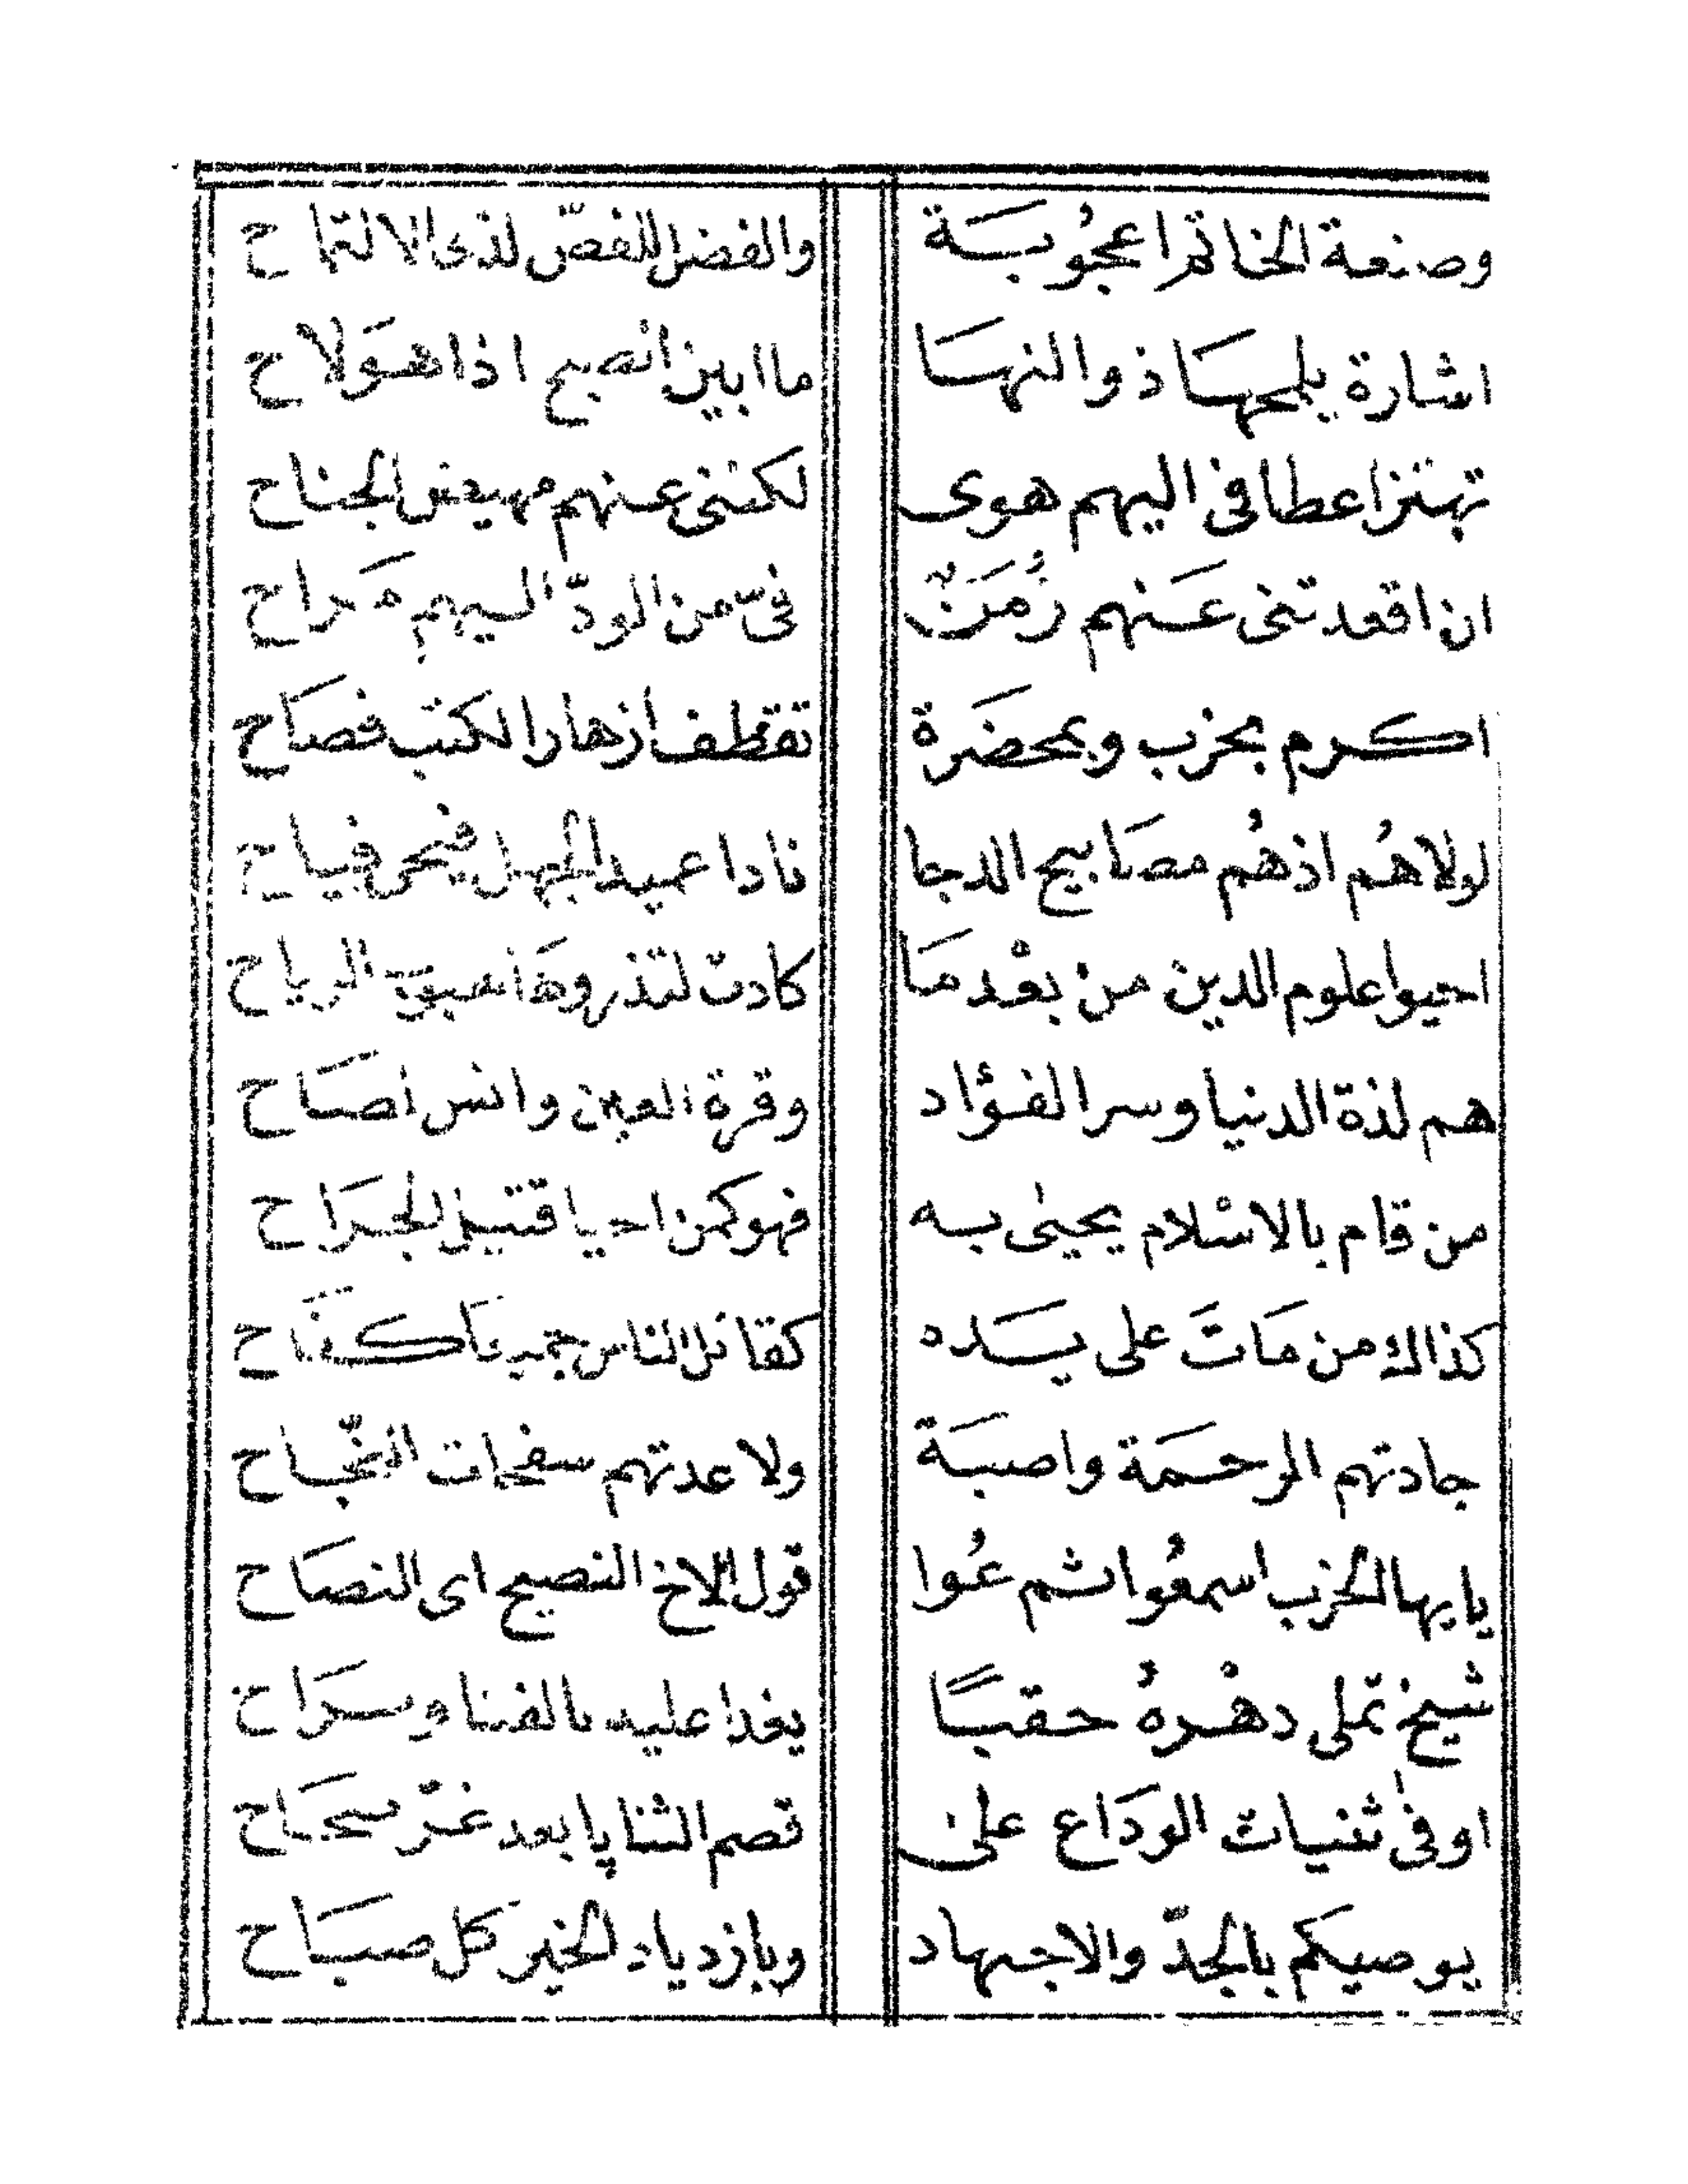 وصنعة الخاتم اعجُوبَة والفضل للفصّ لذى الالتماح
اشارة يلمحهَا ذو النهَا ما ابين الصبح اذا هوَلاح
تهتز اعطافى اليهم هوى لكننى عنهم مهيض الجناح
ان اقعدتنى عَنهم زُمَنٌ فىّ من الودّ اليهم مَراح
اكرم بحزب وبمحضَرة تقطف ازهار الكتب فصَاح
لولاهُم اذهُم مصَابيح الدجا نادا عميد الجهل فيحى فياح
احيوا علوم الدين من بعْد مَا كادت لتذروهَا الرياح
هم لذة الدنيا وسر الفؤاد وقرة العين وانس
من قام بالاسْلام يحيىٰ به فهو كمن احيا قتيل الجرَاح
كذاك من مَاتَ على يَده كقاتل الناس جميعَا كفَاح
جادتهم الرحمَة واصبَة ولا عدتهم النّجاح
يايها الحزب اسمعُوا ثم عُوا قول الاخ النصيح اى النصَاح
شيخ تملى دهْرهُ حقبًا يغدا عليه بالفنا ويرَاح
اوفى ثنيات الوَدَاع على قصم الثنايا بعد
يوصيكم بالجدّ والاجهاد وبازدياد الخير كل صبَاح